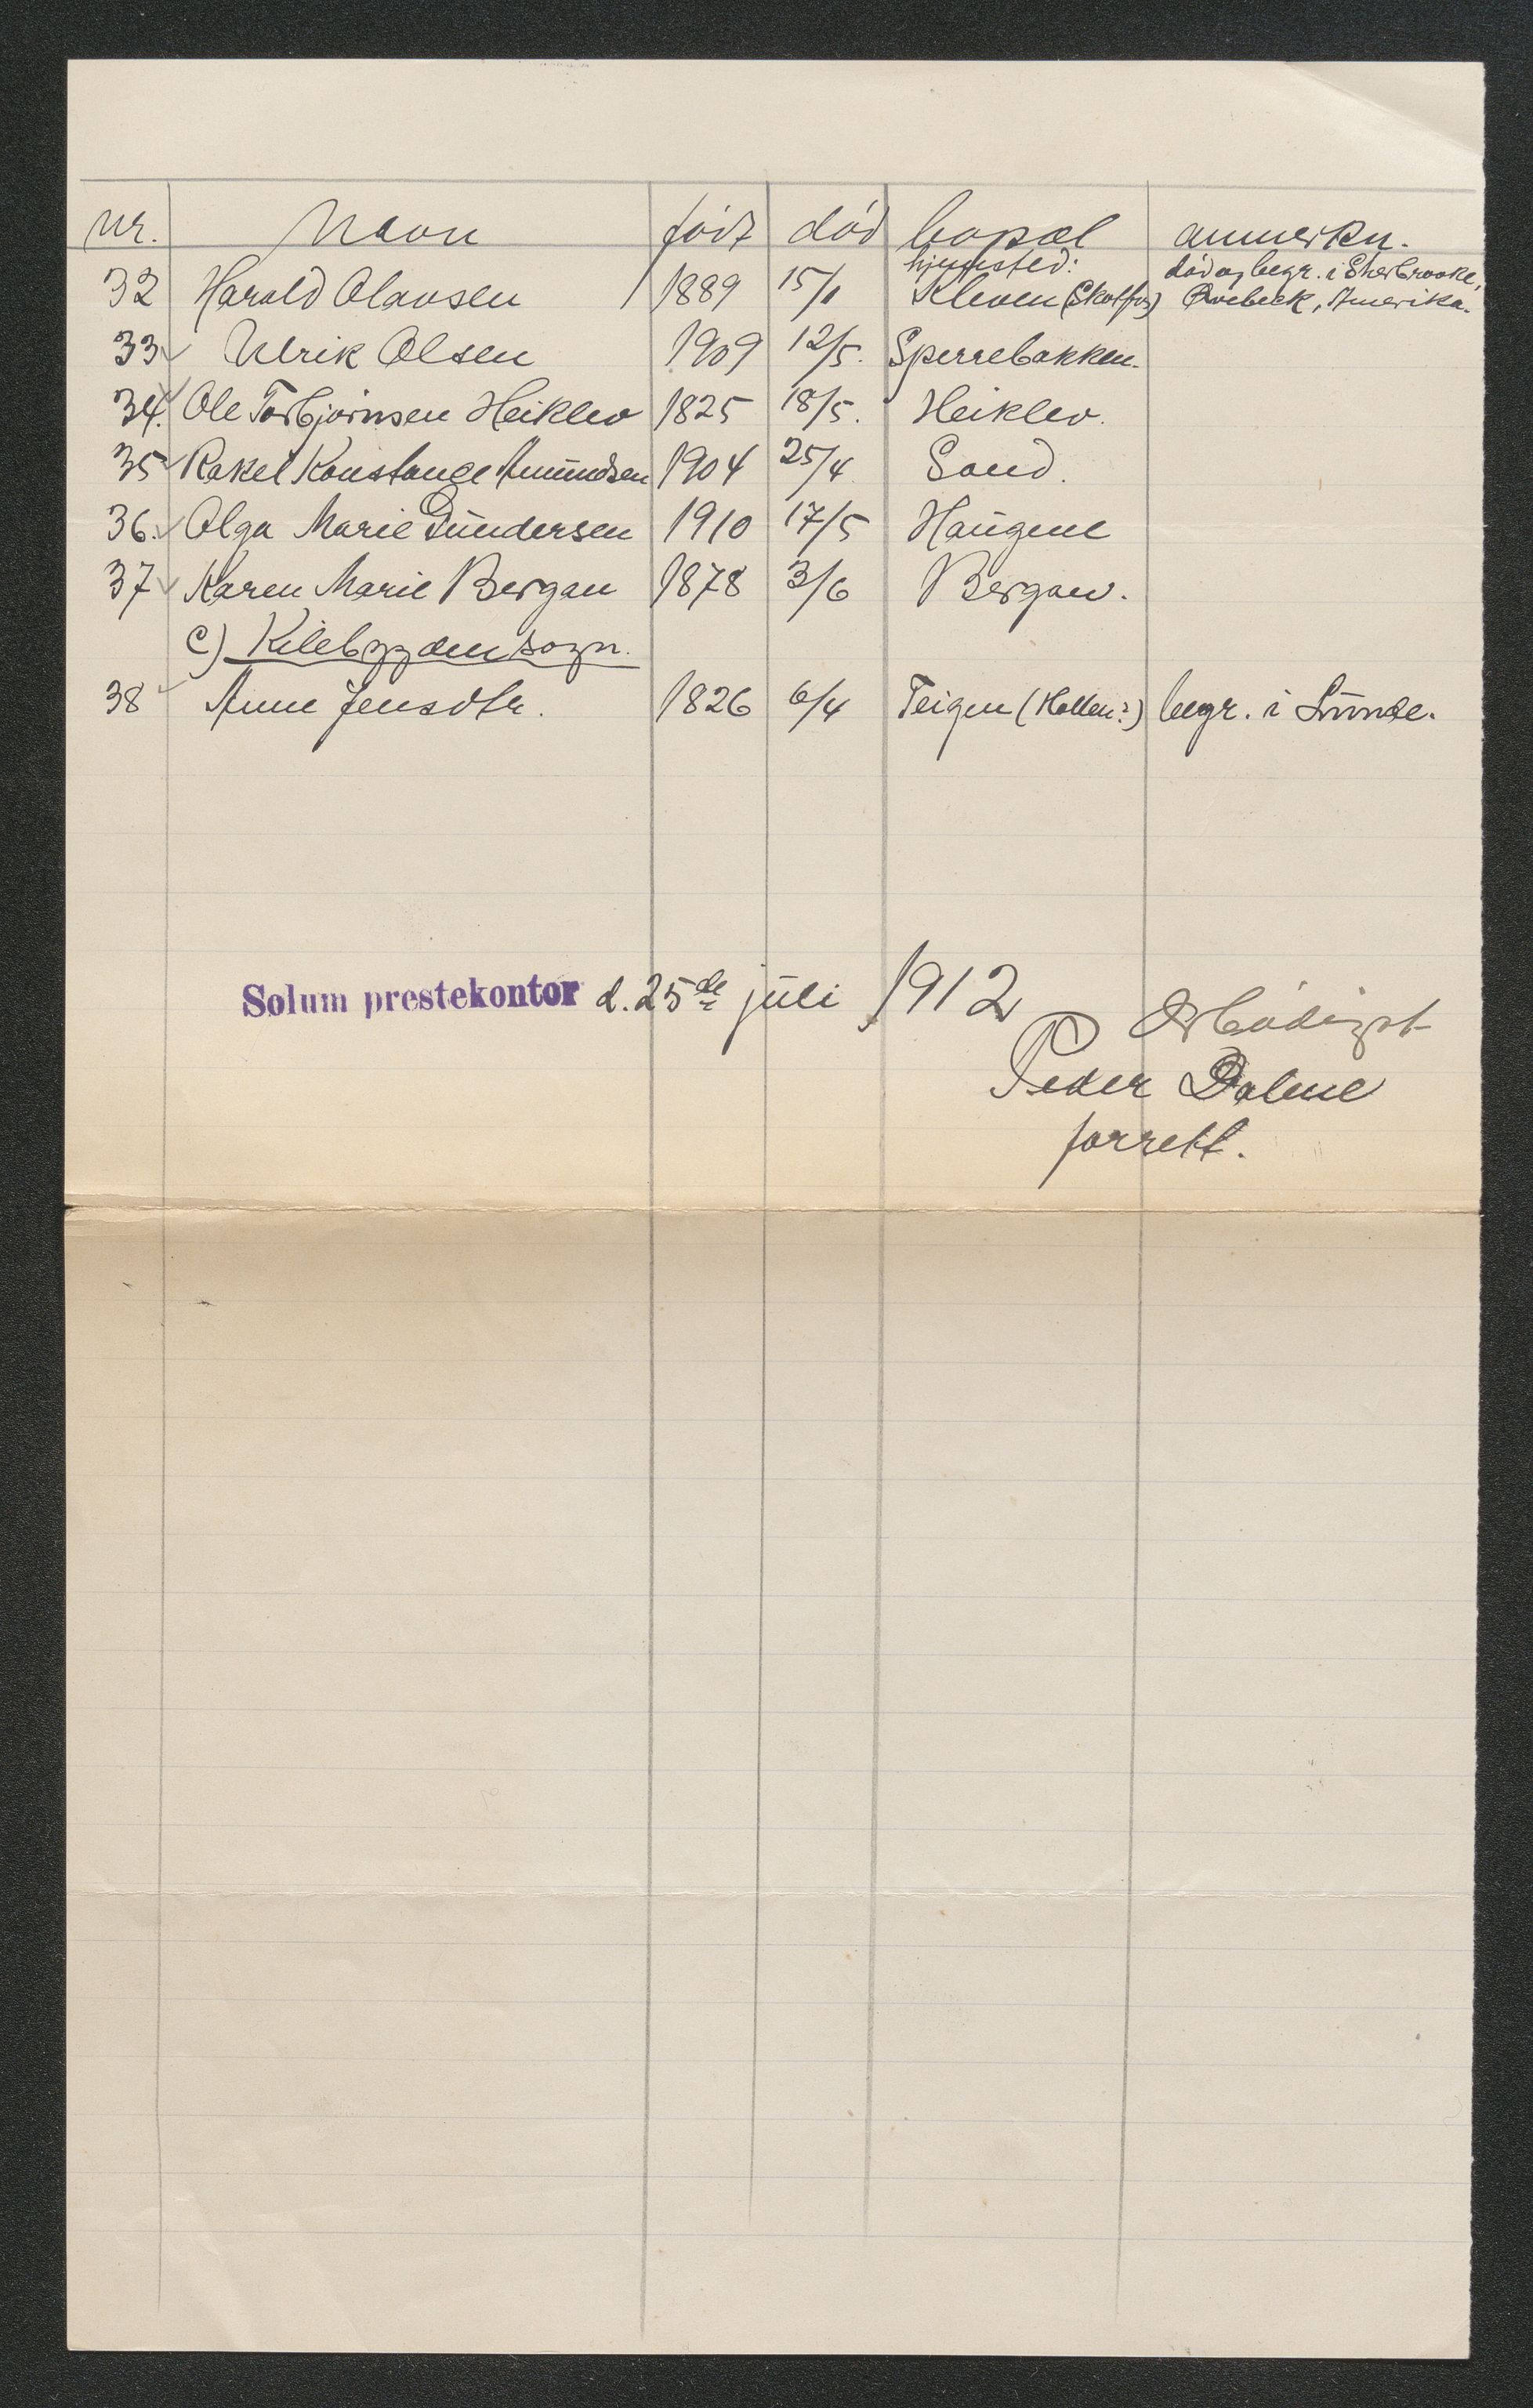 nr. Navn født død bopæl anmerkn.
32 Harald Olavsen 1889 15/1 hjemsted: Kleven (Skotfos) død og begr. i Sherbrooke, Qvebeck, Amerika.
33 Ulrik Olsen 1909 12/5. Sperrebakken.
34. Ole Torbjørnsen Heiklev 1825 18/5. Heiklev.
35 Rakel Konstance Amundsen 1904 25/4 Sand.
36. Olga Marie Gundersen 1910 17/5 Haugene
37 Karen Marie Bergan 1878 3/6 Bergan.
c) Kilebygden sogn.
38 Anne Jensdtr. 1826 6/4 Teigen (Hollen?) begr. i Lunde.
Solum prestekontor d. 25de juli 1912
Ærbødigst
Peder Dalene
forrett.